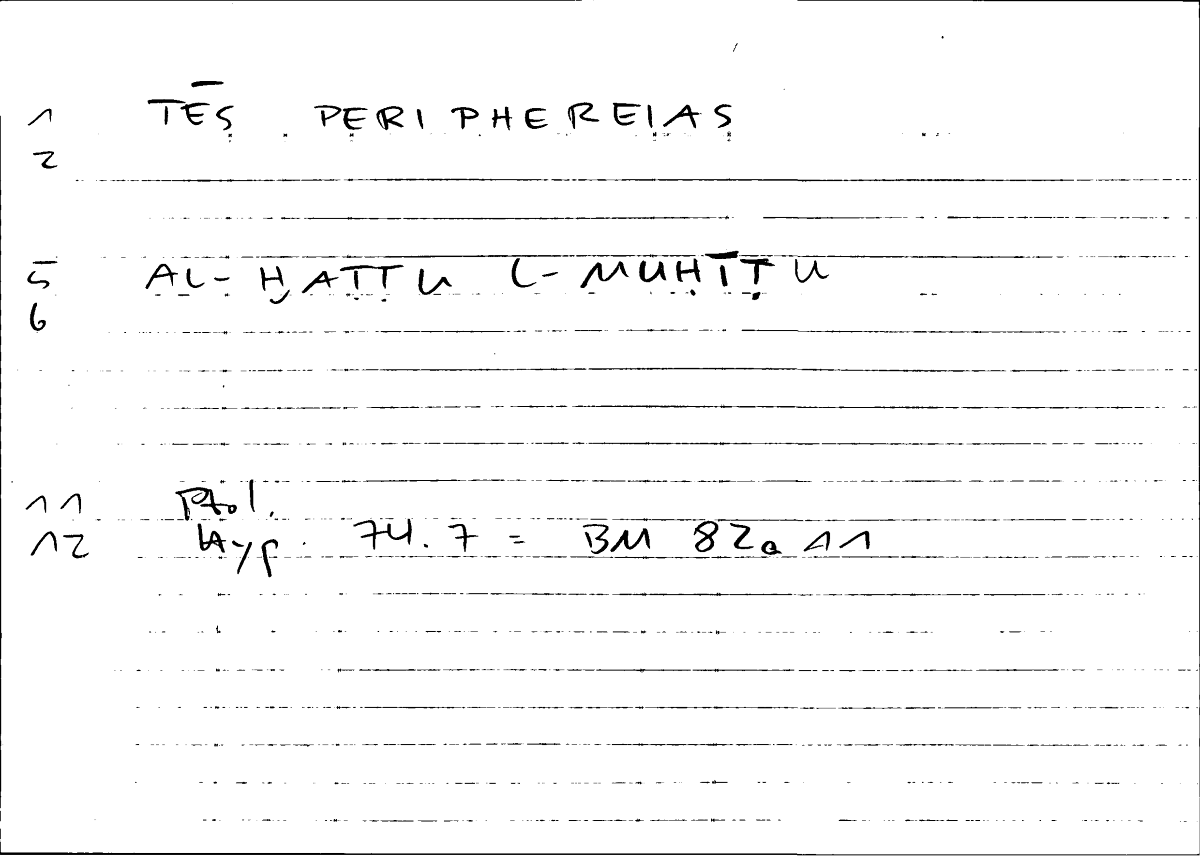 1 TĒS PERIPHEREIAS
2
5 AL-H̱AṬṬU L-MUḤĪṬU
6
11 Ptol.
12 Hyp. 74.7 = BM 82a 11